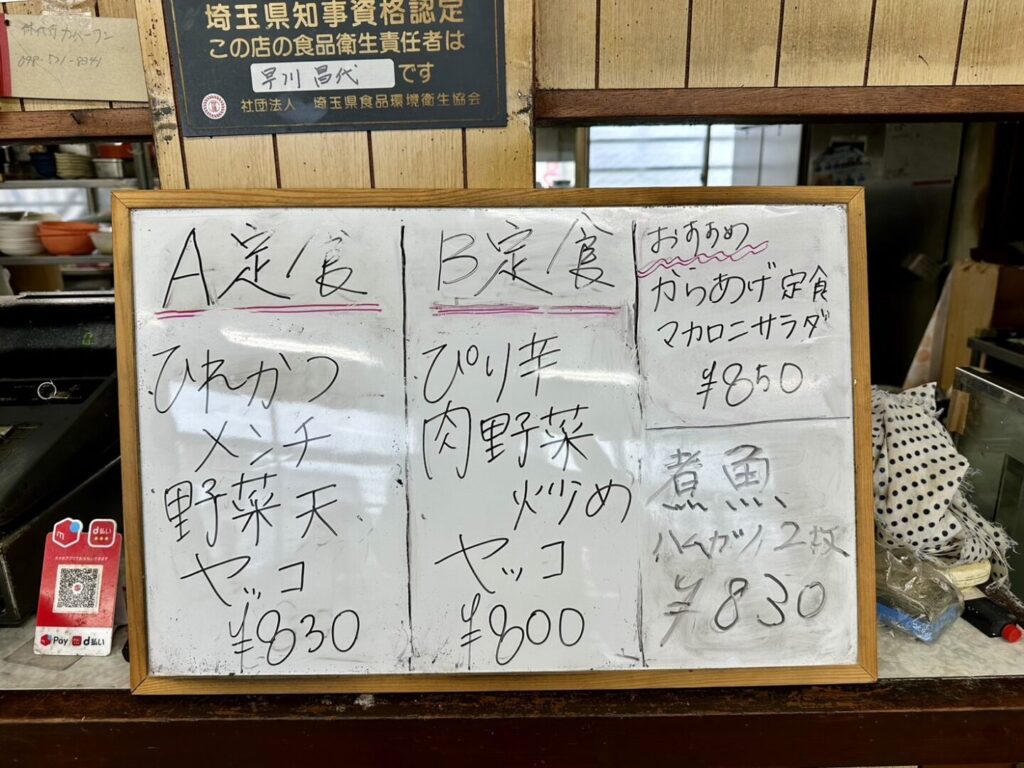 埼玉県知事資格認定
この店の食品衛生責任者は
早川 昌代 です
社団法人 埼玉県食品環境衛生協会
A定食
ひれかつ
メンチ
野菜天
ヤッコ
¥830
B定食
ぴり辛
肉野菜
炒め
ヤッコ
¥800
おすすめ
からあげ定食
マカロニサラダ
¥850
煮魚
ハムカツ2枚
¥830
d払い
Pay d払い